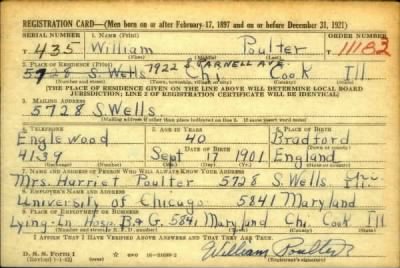 REGISTRATION CARD—(Men born on or after February 17, 1897 and on or before December 31, 1921)
SERIAL NUMBER 1. NAME (Print) ORDER NUMBER
T 435 William Poulter 11182
(First) (Middle) (Last)
7922 S PARNELL AVE
2. PLACE OF RESIDENCE (Print)
5728 S. Wells Chi. Cook Ill.
(Number and street) (Town, township, village, or city) (County) (State)
[THE PLACE OF RESIDENCE GIVEN ON THE LINE ABOVE WILL DETERMINE LOCAL BOARD
JURISDICTION; LINE 2 OF REGISTRATION CERTIFICATE WILL BE IDENTICAL]
3. MAILING ADDRESS
5728 S Wells
[Mailing address if other than place indicated on line 2. If same insert word same]
4. TELEPHONE 5. AGE IN YEARS 6. PLACE OF BIRTH
Englewood 40 Bradford
DATE OF BIRTH
4139 Sept 17 1901 England
(Exchange) (Number) (Mo.) (Day) (Yr.) (State or country)
7. NAME AND ADDRESS OF PERSON WHO WILL ALWAYS KNOW YOUR ADDRESS
Mrs. Harriet Poulter 5728 S. Wells Chi. Ill.
8. EMPLOYER'S NAME AND ADDRESS
University of Chicago 5841 Maryland
9. PLACE OF EMPLOYMENT OR BUSINESS
Lying-In Hosp. B&G. 5841 Maryland Chi. Cook Ill
(Number and street or R. F. D. number) (Town) (County) (State)
I AFFIRM THAT I HAVE VERIFIED ABOVE ANSWERS AND THAT THEY ARE TRUE.
D. S. S. Form 1 (Revised 1-1-42) GPO 16—21630-2
William Poulter